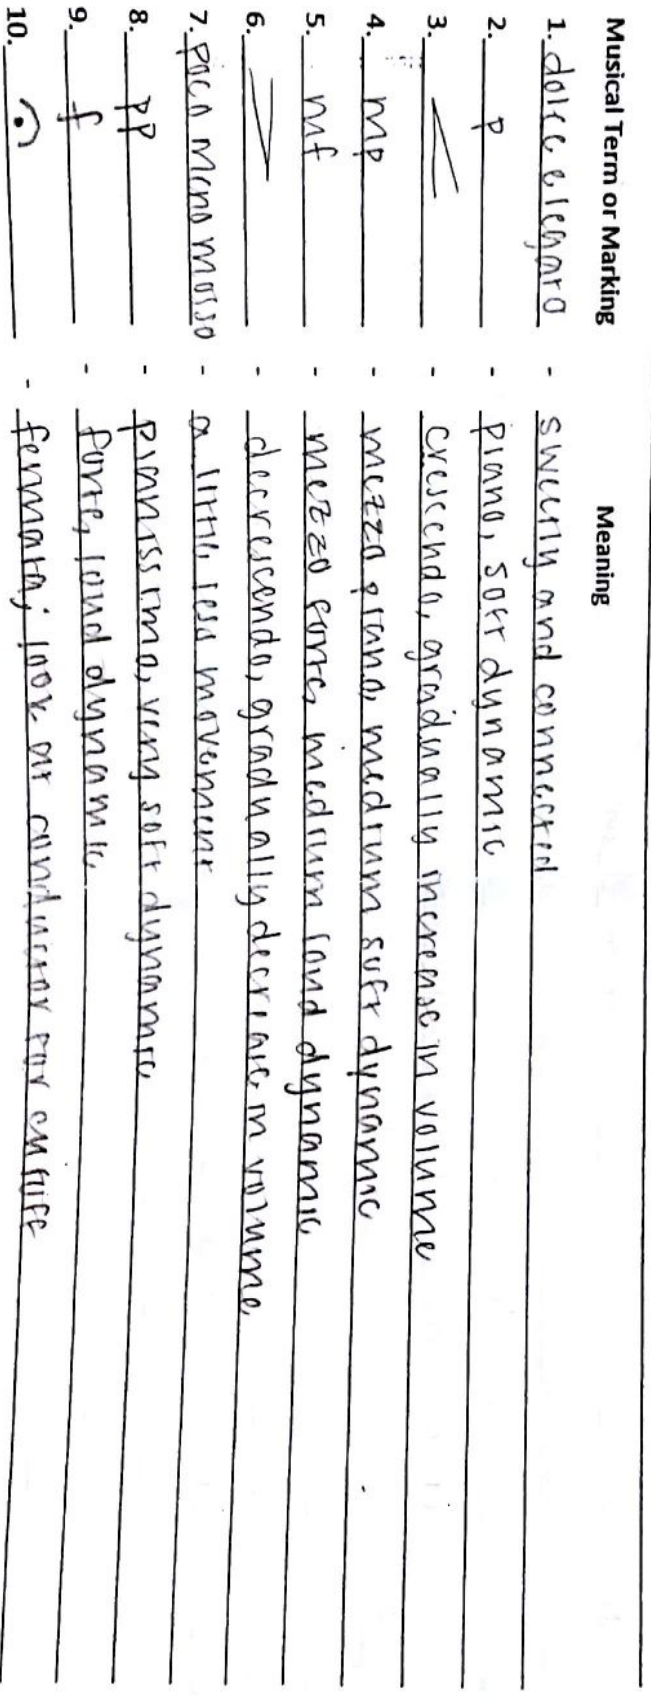 Musical Term or Marking Meaning
1. dolce e legaro - sweetly and connected
2. p - piano, soft dynamic
3. < - crescendo, gradually increase in volume
4. mp - mezzo piano, medium soft dynamic
5. mf - mezzo forte, medium loud dynamic
6. > - decrescendo, gradually decrease in volume
7. poco meno mosso - a little less movement
8. pp - pianissimo, very soft dynamic
9. f - forte, loud dynamic
10. 𝄐 - fermata; look at conductor for cutoff